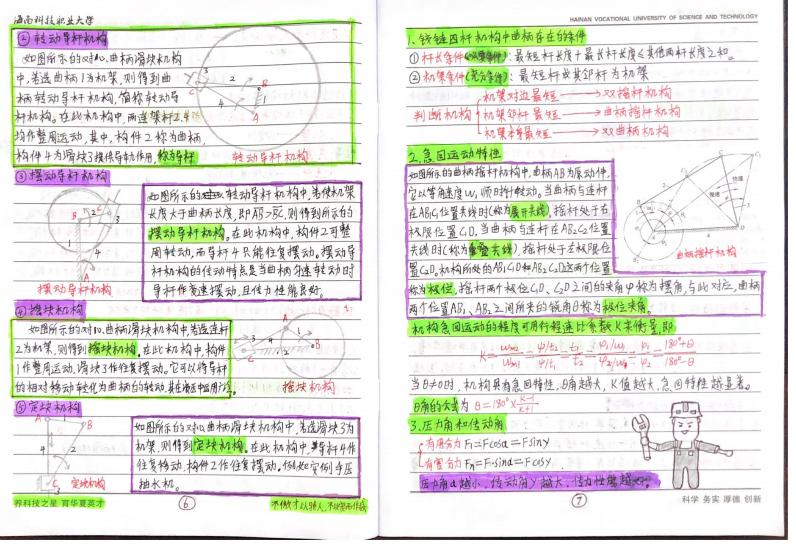 海南科技职业大学
②转动导杆机构
如图所示的对心曲柄滑块机构
中,若选曲柄1为机架,则得到曲
柄转动导杆机构,简称转动导
杆机构。在此机构中,两连架杆2,4
均作整周运动,其中,构件2称为曲柄,
构件4为滑块3提供导轨作用,称为导杆
转动导杆机构
③摆动导杆机构
如图所示的转动导杆机构中,若使机架
长度大于曲柄长度,即AB>BC,则得到所示的
摆动导杆机构。在此机构中,构件2可整
周转动,而导杆4只能往复摆动。摆动导
杆机构的传动特点是当曲柄匀速转动时
导杆作变速摆动,且传力性能良好。
摆动导杆机构
④摇块机构
如图所示的对心曲柄滑块机构中若选连杆
2为机架,则得到摇块机构。在此机构中,构件
1作整周运动,滑块3作往复摆动。它可以将导杆
的相对移动转化为曲柄的转动,其在液压中应用广泛。
摇块机构
⑤定块机构
如图所示的对心曲柄滑块机构中,若选滑块3为
机架,则得到定块机构。在此机构中,导杆4作
往复移动,构件2作往复摆动。例如实例手压
抽水机。
定块机构
养科技之星 育华夏英才
⑥
HAINAN VOCATIONAL UNIVERSITY OF SCIENCE AND TECHNOLOGY
1、铰链四杆机构中曲柄存在的条件
①杆长条件(必要条件):最短杆长度+最长杆长度≤其他两杆长度之和。
②机架条件(充分条件):最短杆或其邻杆为机架
判断机构
机架对边最短→双摇杆机构
机架邻杆最短→曲柄摇杆机构
机架本身最短→双曲柄机构
2.急回运动特性
如图所示的曲柄摇杆机构中,曲柄AB为原动件,
它以等角速度W₁顺时针转动。当曲柄与连杆
在AB₁C₁位置共线时(称为展开共线),摇杆处于右
极限位置C₁D,当曲柄与连杆在AB₂C₂位置
共线时(称为重叠共线),摇杆处于左极限位
置C₂D。机构所处的AB₁C₁D和AB₂C₂D这两个位置
称为极位,摇杆两个极位C₁D、C₂D之间的夹角φ称为摆角,与此对应,曲柄
两个位置AB₁、AB₂之间所夹的锐角θ称为极位夹角。
曲柄摇杆机构
机构急回运动的程度可用行程速比系数K来衡量,即
K=Wm2/Wm1=(ψ/t₂)/(ψ/t₁)=t₁/t₂=(φ₁/W₁)/(φ₂/W₁)=φ₁/φ₂=(180°+θ)/(180°-θ)
当θ≠0时,机构具有急回特性,θ角越大,K值越大,急回特性越显著。
θ角的公式为 θ=180°×(K-1)/(K+1)
3.压力角和传动角
有用分力F₁=Fcosα=Fsinγ
有害分力Fn=F·sinα=Fcosγ
压力角α越小,传动角γ越大,传力性能越好。
⑦
科学 务实 厚德 创新